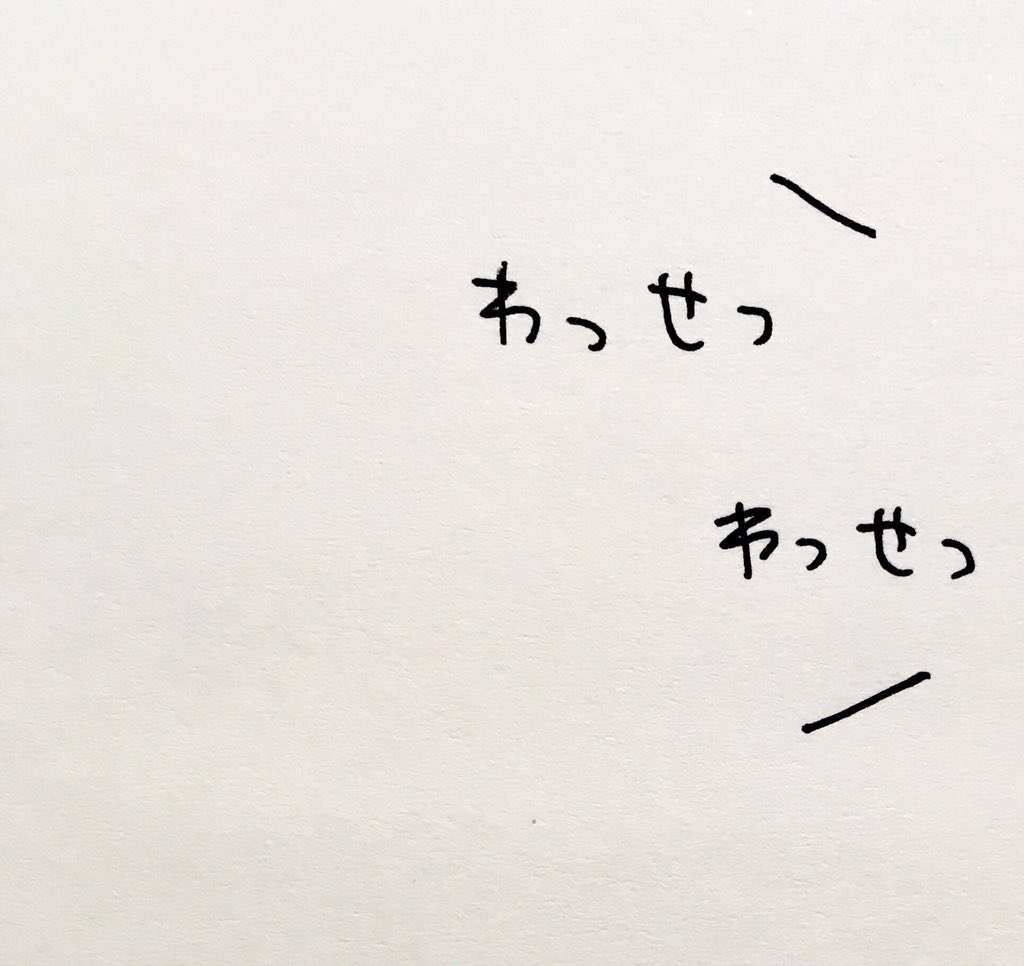 わっせっ
わっせっ